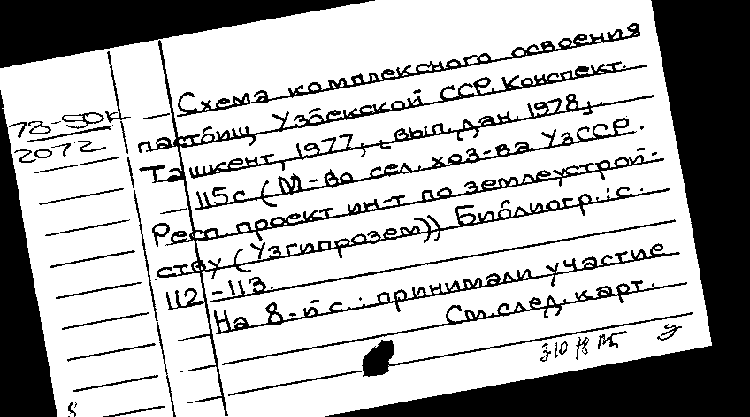 Схема комплексного освоения
78-50к
пастбищ Узбекской ССР. Конспект.
2072
Ташкент, 1977, вып. дан. 1978,
115с (М-во сел. хоз-ва УзССР.
Респ проект ин-т по землеустрой-
ству (Узгипрозем)) Библиогр.: с.
112-113.
На 8-й с.: принимали участие
См. след. карт.